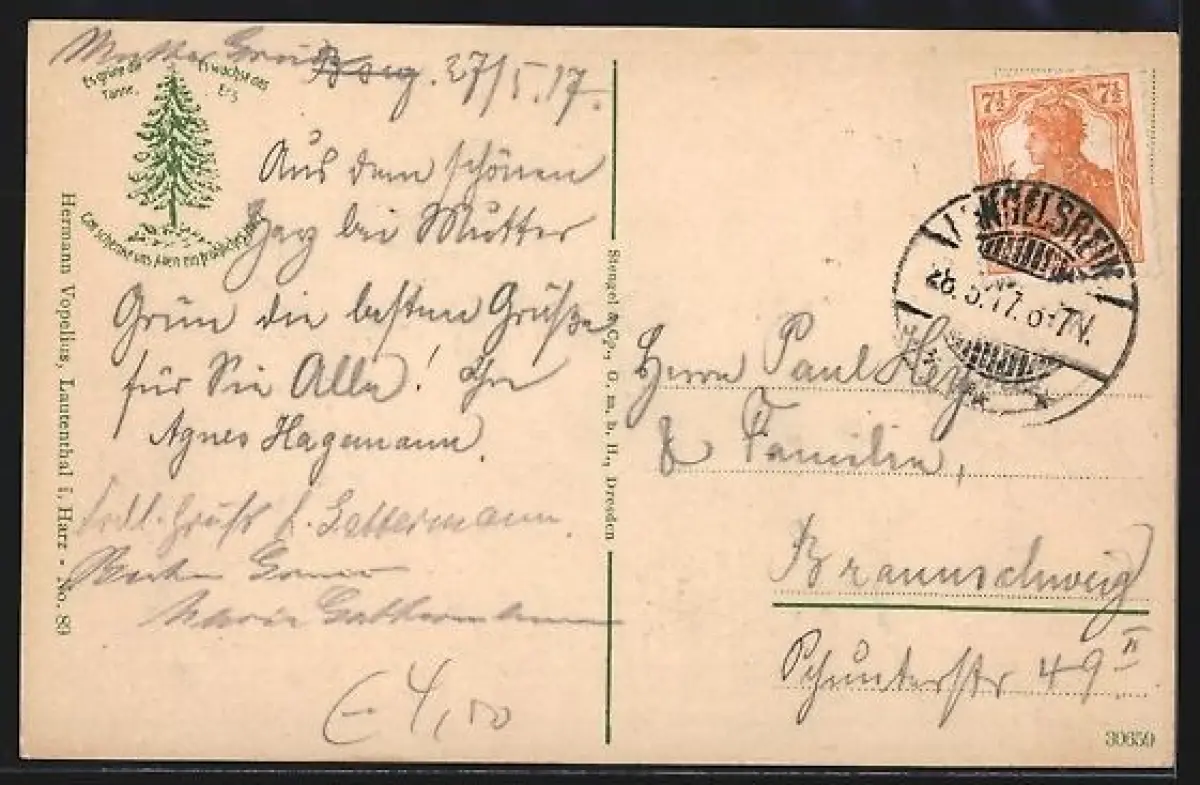 Mutter Grün
Bsg. 27/5.17.
Es grüne die Tanne,
Es wachse das Erz
Gott schenke uns Allen ein fröhliches
Aus dem schönen
Harz bei Mutter
Grün die besten Grüße
für Sie Alle! Ihre
Agnes Hagemann.
Frdl. Gruß
Hermann Vopelius, Lautenthal i. Harz - No. 89
Stengel & Co., G. m. b. H., Dresden
7½ 7½
LANGELSHEIM
28.5.17.6-7N.
Herrn Paul
& Familie,
Braunschweig
Schunterstr 49 II
4,00
39659